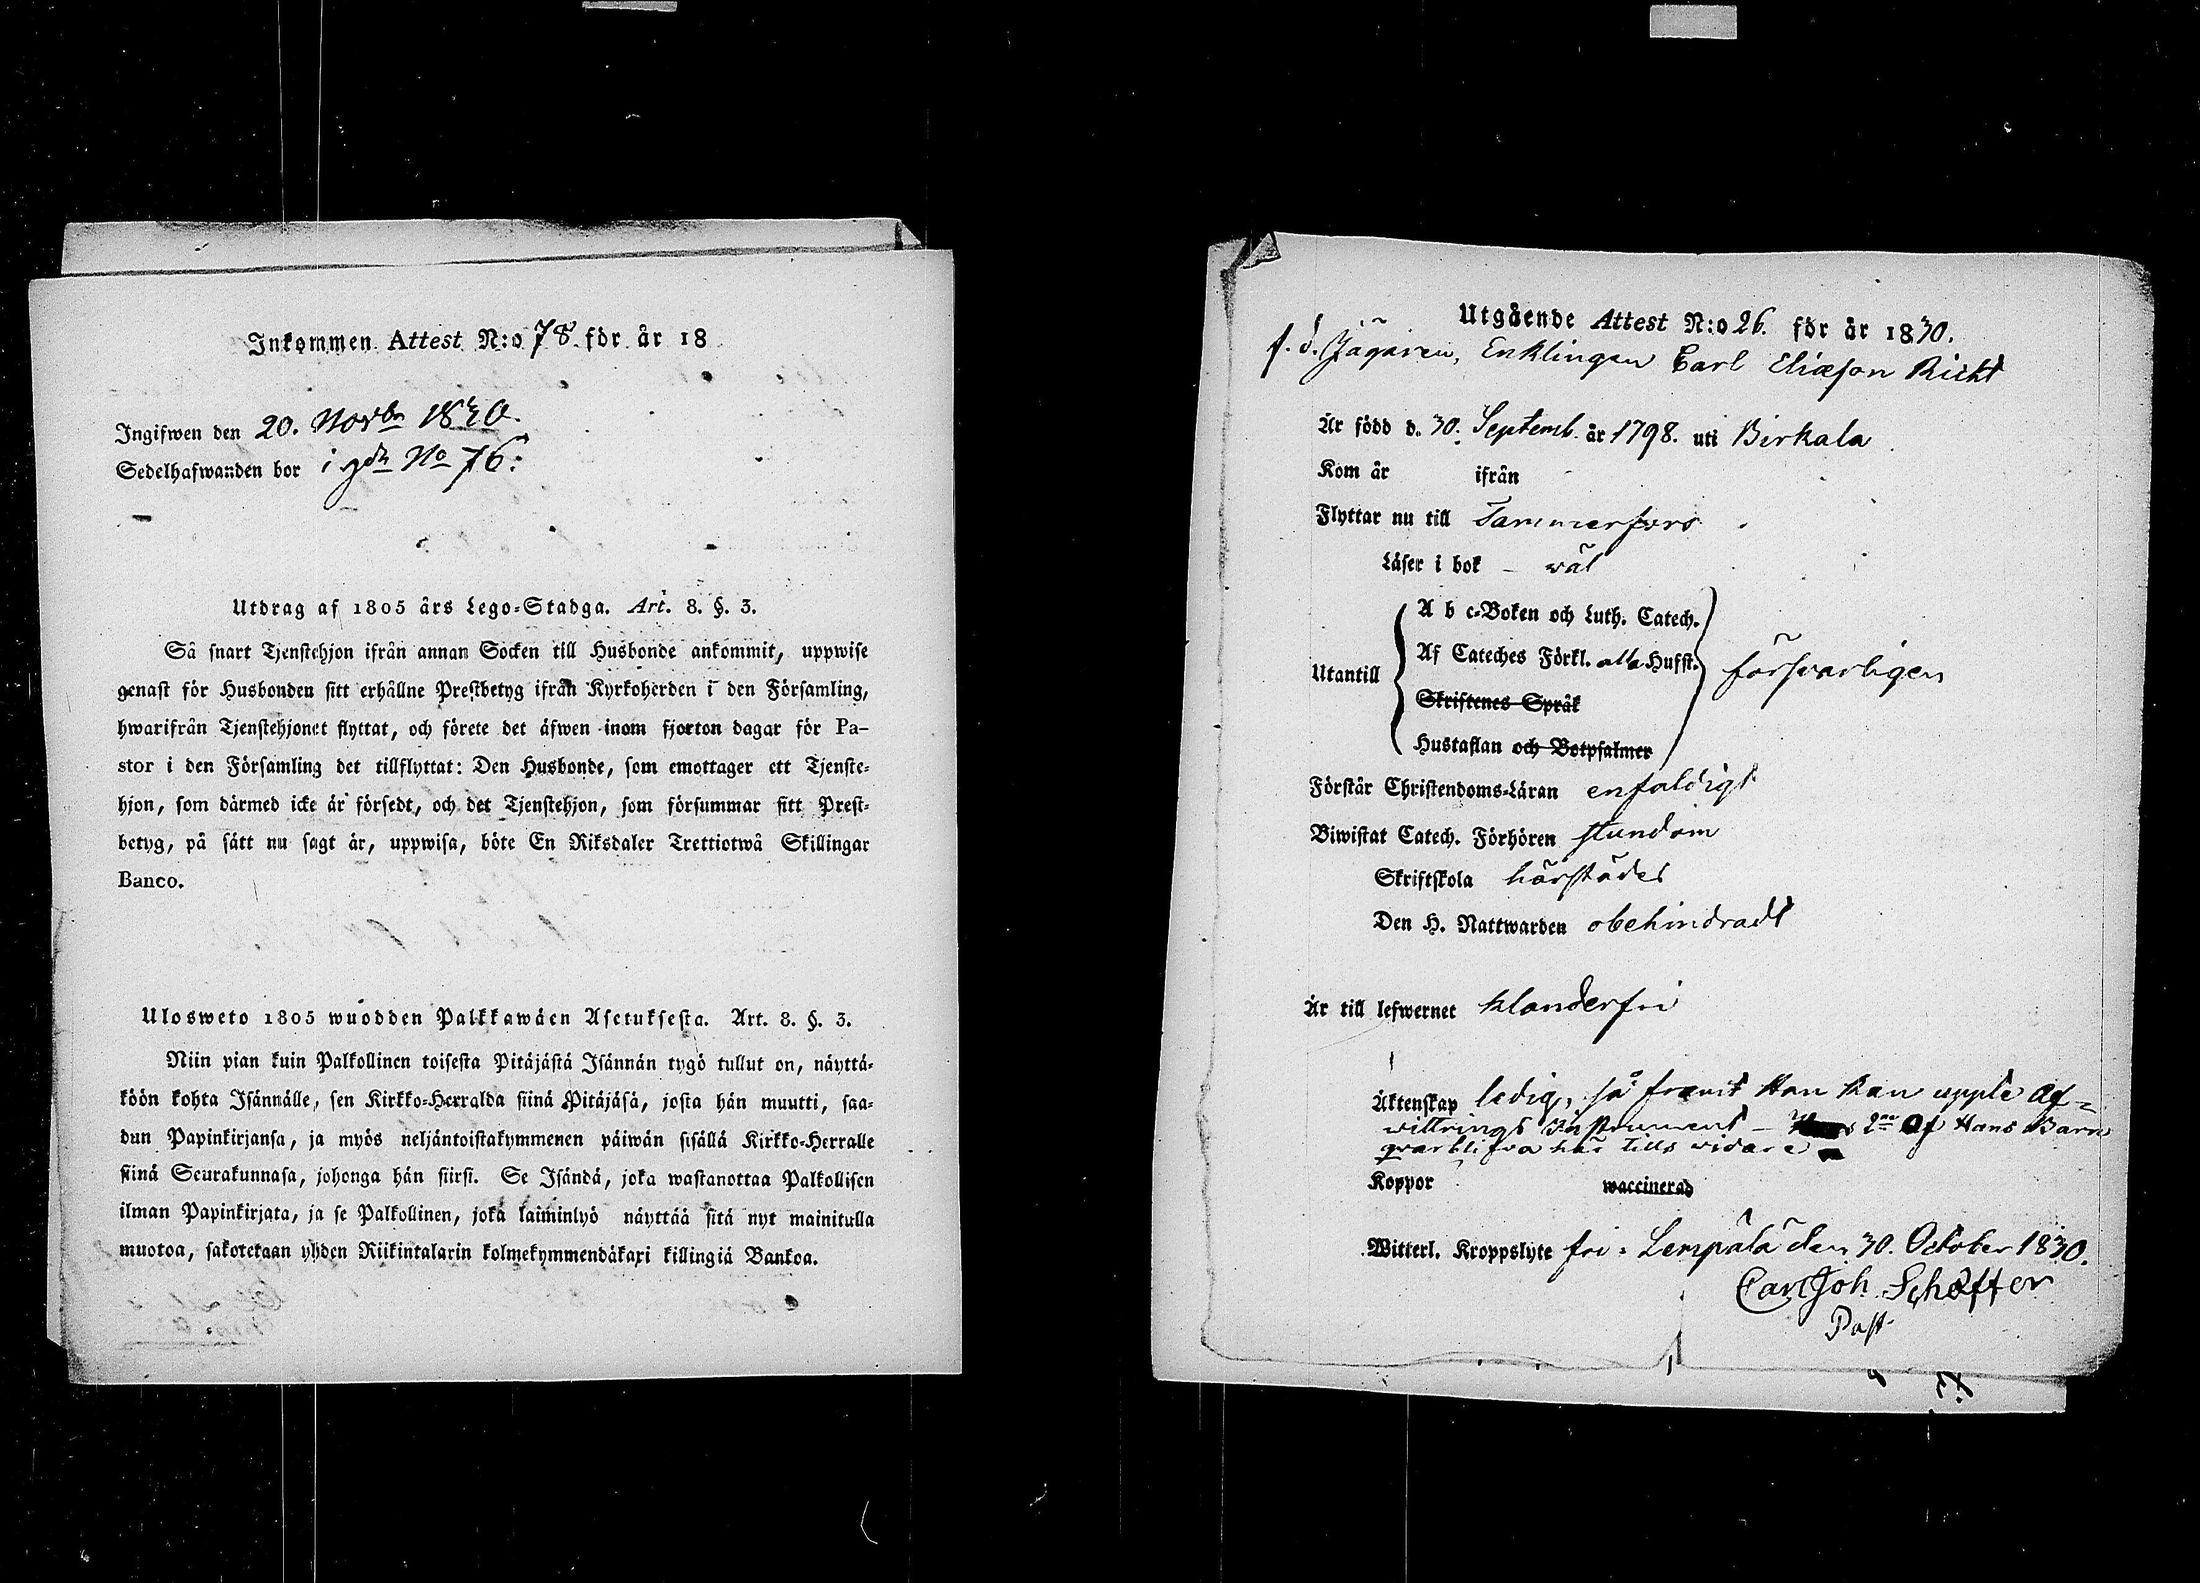 Inkommen Attest N:o 78. för år 18
Ingifwen den 20. Novbr 1830.
Sedelhafwanden bor i gdn No 76:
Utdrag af 1805 års Lego-Stadga. Art. 8. §. 3.
Så snart Tjenstehjon ifrån annan Socken till Husbonde ankommit, uppwise
genast för Husbonden sitt erhållne Prestbetyg ifrån Kyrkoherden i den Församling,
hwarifrån Tjenstehjonet flyttat, och förete det äfwen inom fjorton dagar för Pa-
stor i den Församling det tillflyttat: Den Husbonde, som emottager ett Tjenste-
hjon, som därmed icke är försedt, och det Tjenstehjon, som försummar sitt Prest-
betyg, på sätt nu sagt är, uppwisa, böte En Riksdaler Trettiotwå Skillingar
Banco.
Ulosweto 1805 wuodden Palkkawäen Asetuksesta. Art. 8. §. 3.
Niin pian kuin Palkollinen toisesta Pitäjästä Isännän tygö tullut on, näyttä-
köön kohta Isännälle, sen Kirkko-Herralda siinä Pitäjäsä, josta hän muutti, saa-
dun Papinkirjansa, ja myös neljäntoistakymmenen päiwän sisällä Kirkko-Herralle
siinä Seurakunnasa, johonga hän siirsi. Se Isändä, joka wastanottaa Palkollisen
ilman Papinkirjata, ja se Palkollinen, joka laiminlyö näyttää sitä nyt mainitulla
muotoa, sakotetaan yhden Riikintalarin kolmekymmendäkaxi killingiä Bankoa.
Utgående Attest N:o 26. för år 1830.
f. d. Jägaren, Enklingen Carl Eliæson Richt
Är född d. 30. Septemb. år 1798. uti Birkala
Kom år ifrån
Flyttar nu till Tammerfors
Läser i bok - wäl
A b c-Boken och Luth. Catech.
Af Cateches Förkl. alla Hufst.
Utantill försvarligen
Skriftenes Språk
Hustaflan och Botpsalmer
Förstår Christendoms-Läran enfaldigt
Biwistat Catech. Förhören stundom
Skriftskola härstädes
Den H. Nattwarden obehindradt
Är till lefwernet klanderfri
Äktenskap ledig, så framt Han kan uppte Af-
wittrings Instrument - 2ne Af Hans Barn
qvarblifva här tills widare
Koppor waccinerad
Witterl. Kroppslyte fri. Lempälä den 30. October 1830.
Carl Joh. Schæffer
Past.